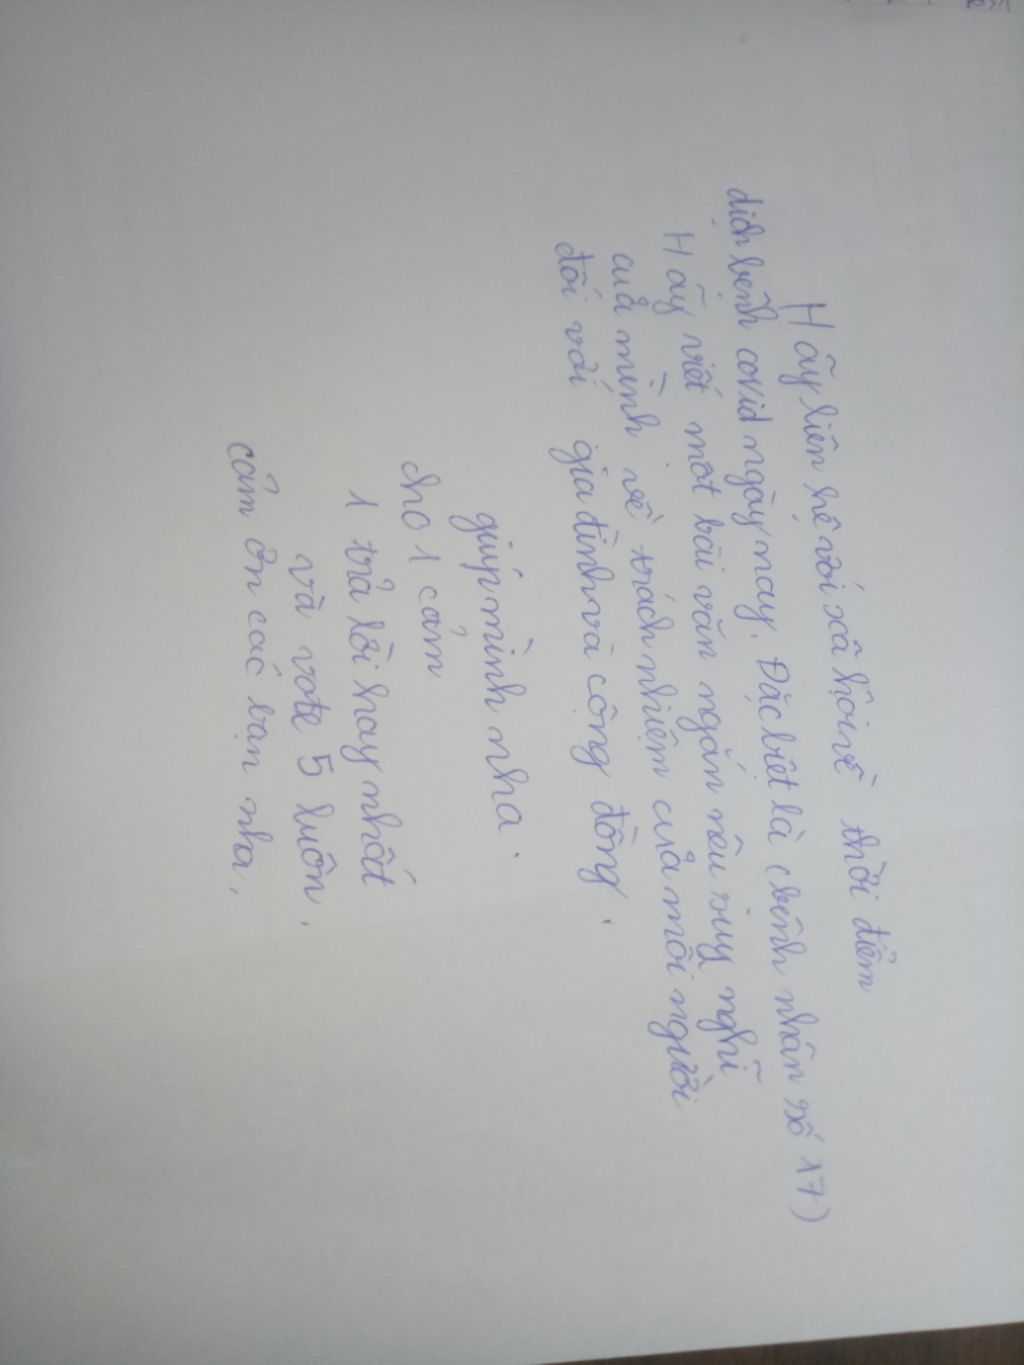 Hãy liên hệ với xã hội về thời điểm
dịch bệnh covid ngày nay. Đặc biệt là (bệnh nhân số 17)
Hãy viết một bài văn ngắn nêu suy nghĩ
của mình về trách nhiệm của mỗi người
đối với gia đình và cộng đồng.
giúp mình nha.
cho 1 cảm
1 trả lời hay nhất
và vote 5 luôn.
cảm ơn các bạn nha,